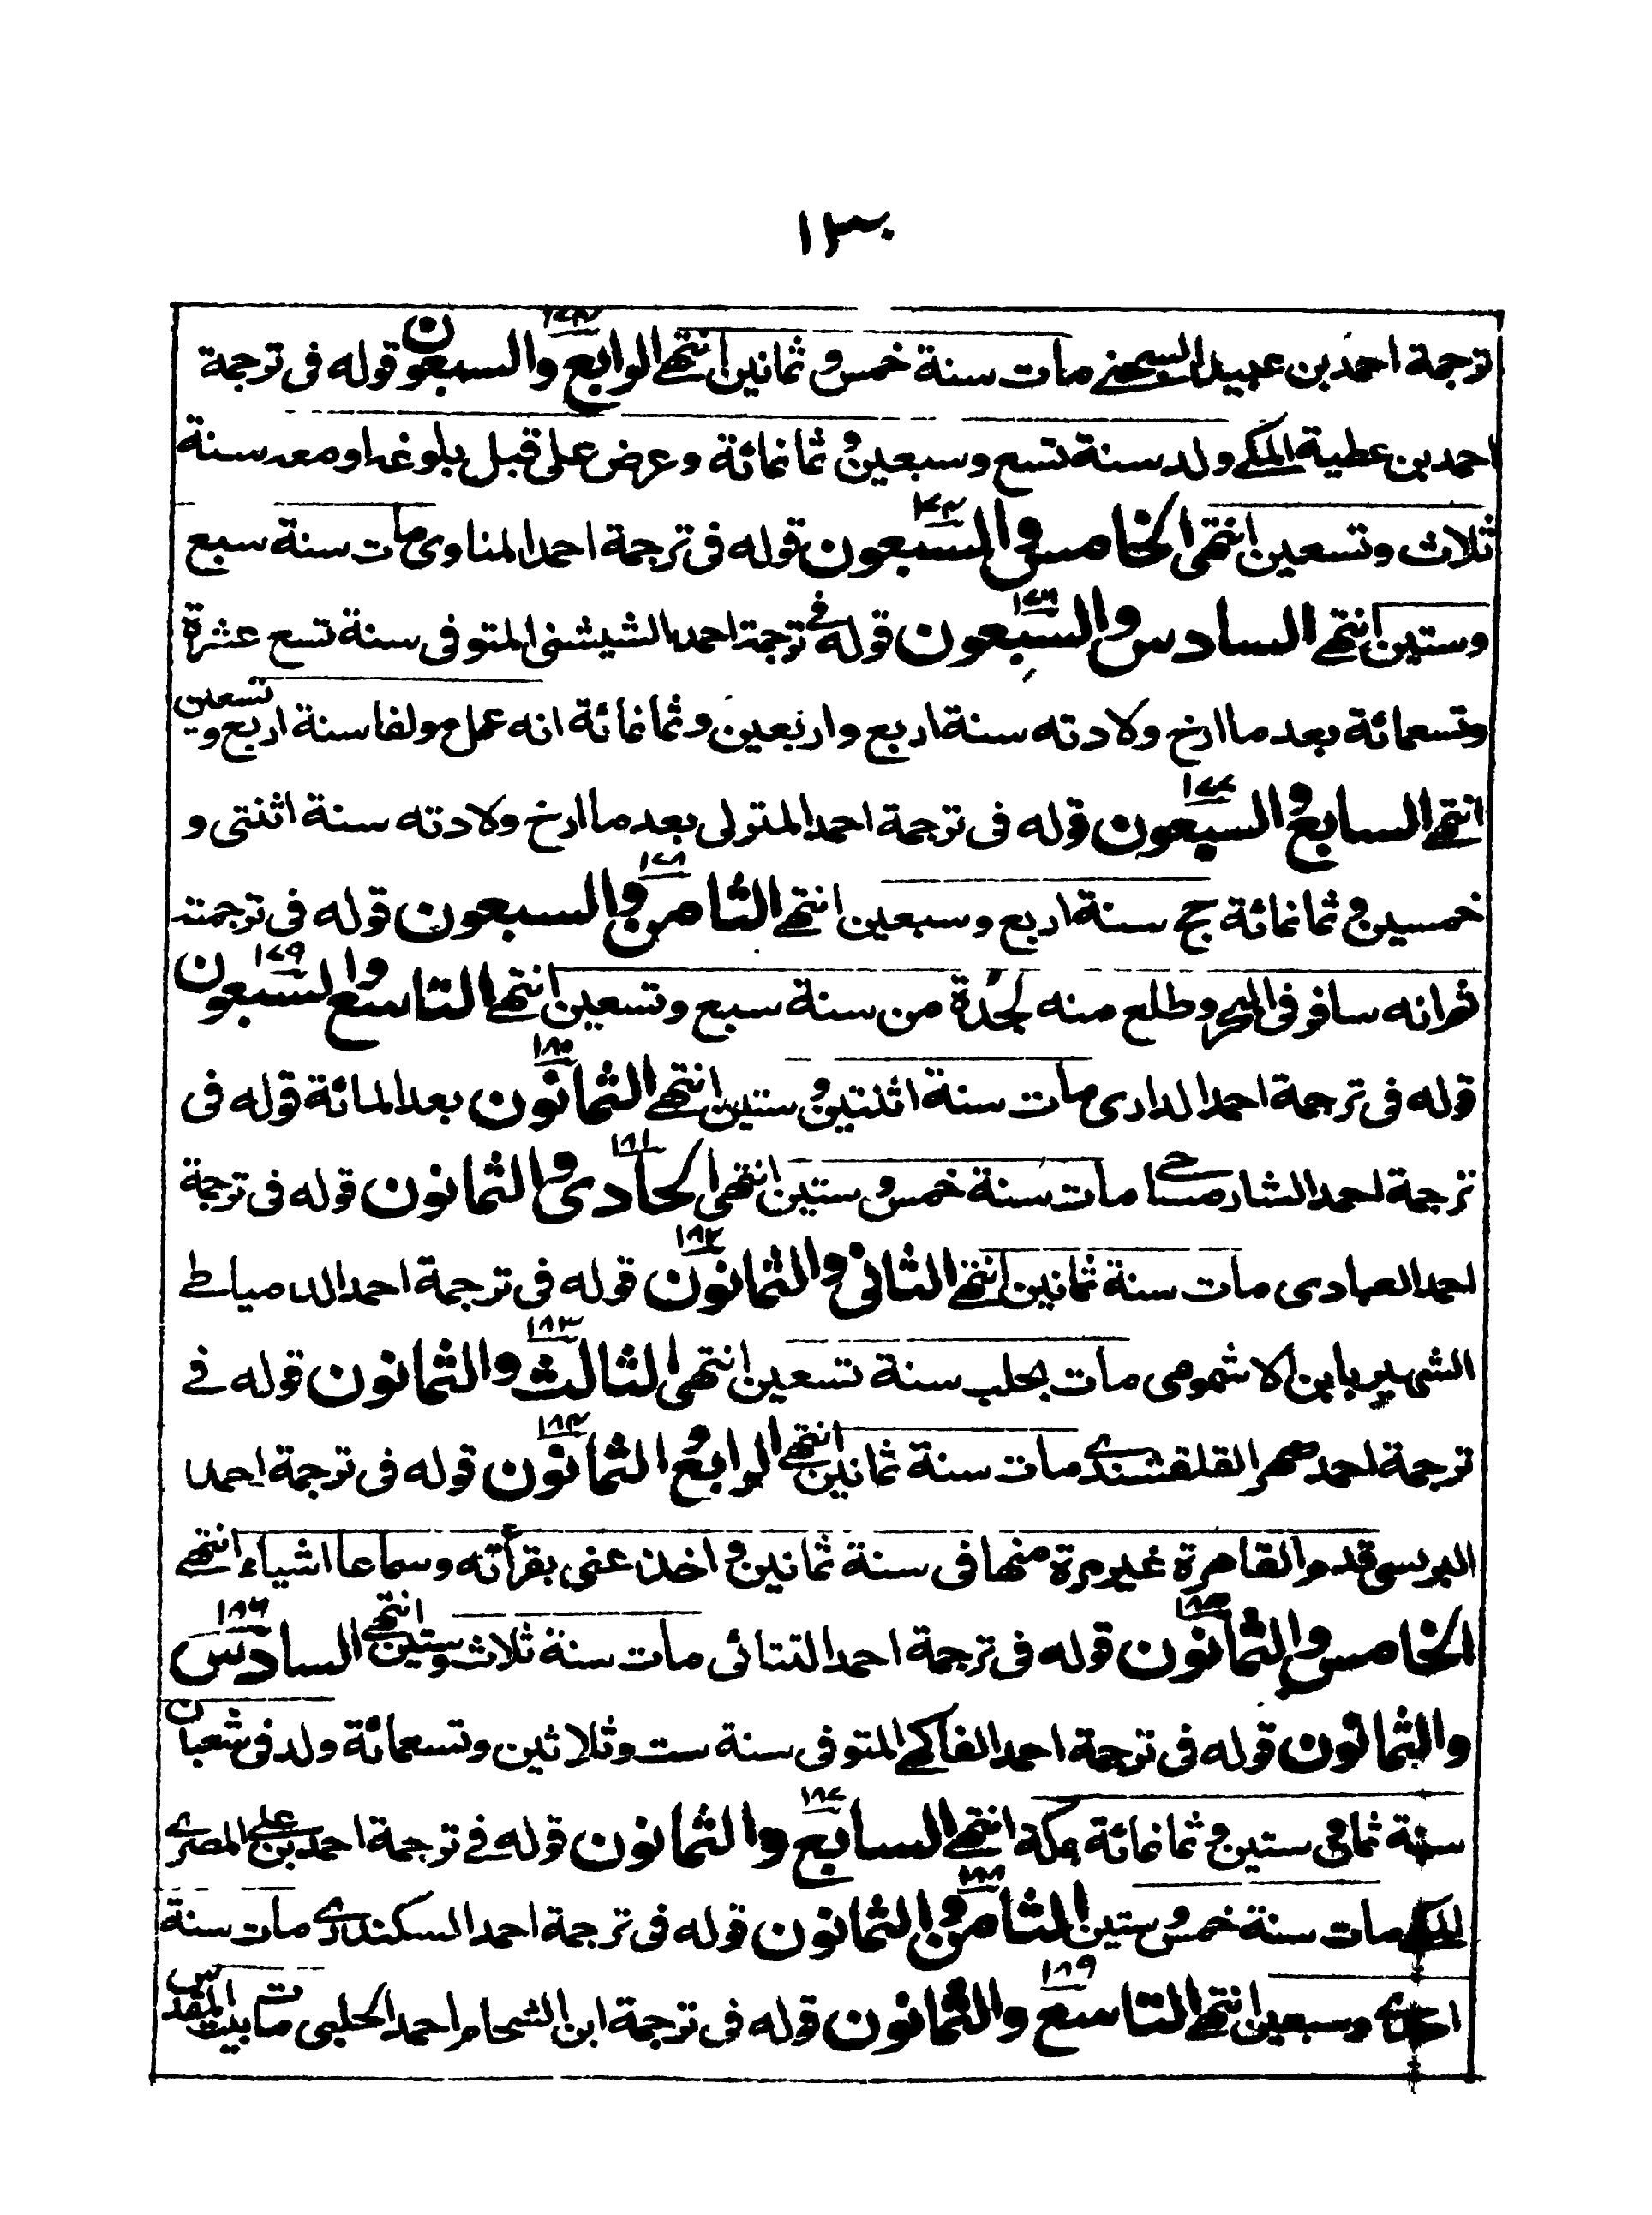 ١٣٠
ترجمة احمد بن عبيد السجيني مات سنة خمس و ثمانين انتهى الرابع والسبعون ١٧٤ قوله فى ترجمة
احمد بن عطية المكى ولد سنة تسع وسبعين و ثمانمائة وعرض على قبل بلوغه او معه سنة
ثلاث وتسعين انتهى الخامس والسبعون ١٧٥ قوله فى ترجمة احمد المناوى مات سنة سبع
وستين انتهى السادس والسبعون ١٧٦ قوله فى ترجمة احمد الشيشنى المتوفى سنة تسع عشرة
وتسعمائة بعد ما ارخ ولادته سنة اربع واربعين وثمانمائة انه عمل مولفا سنة اربع وتسعين
انتهى السابع والسبعون ١٧٧ قوله فى ترجمة احمد المتولى بعد ما ارخ ولادته سنة اثنتى و
خمسين و ثمانمائة حج سنة اربع وسبعين انتهى الثامن والسبعون ١٧٨ قوله فى ترجمته
ثم انه سافر فى البحر وطلع منه لجدة من سنة سبع وتسعين انتهى التاسع والسبعون ١٧٩
قوله فى ترجمة احمد الدارى مات سنة اثنتين وستين انتهى الثمانون ١٨٠ بعد المائة قوله فى
ترجمة احمد الشارمساحى مات سنة خمس وستين انتهى الحادى والثمانون ١٨١ قوله فى ترجمة
احمد العبادى مات سنة ثمانين انتهى الثانى والثمانون ١٨٢ قوله فى ترجمة احمد الدمياطى
الشهير بابن الاشمومى مات بحلب سنة تسعين انتهى الثالث والثمانون ١٨٣ قوله فى
ترجمة احمد القلقشندى مات سنة ثمانين انتهى الرابع والثمانون ١٨٤ قوله فى ترجمة احمد
البرسى قدم القاهرة غير مرة منها فى سنة ثمانين و اخذ عنى بقرأته وسماعا اشياء انتهى
الخامس والثمانون ١٨٥ قوله فى ترجمة احمد التتائى مات سنة ثلاث وستين انتهى السادس ١٨٦
والثمانون قوله فى ترجمة احمد الفاكهى المتوفى سنة ست وثلاثين وتسعمائة ولد فى شعبان
سنة ثمانى وستين و ثمانمائة بمكة انتهى السابع والثمانون ١٨٧ قوله فى ترجمة احمد بن على المصرى
المكى مات سنة خمس وستين الثامن والثمانون ١٨٨ قوله فى ترجمة احمد السكندرى مات سنة
احدى وسبعين انتهى التاسع والثمانون ١٨٩ قوله فى ترجمة ابن الشحام احمد الحلبى مات ببيت المقدس